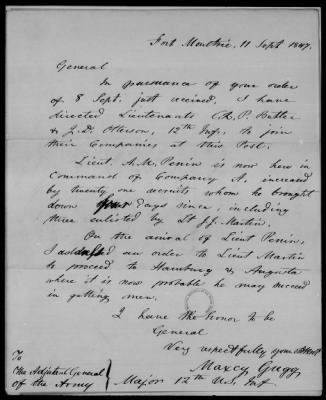 Fort Moultrie, 11 Sept. 1847.
General
In pursuance of your order
of 8 Sept. just received, I have
directed Lieutenants C. P. Butler
& J. D. Otterson, 12th Inf. to join
their Companies at this Post.
Lieut. A. M. Perrin is now here in
Command of Company A, increased
by twenty one recruits whom he brought
down four days since; including
three enlisted by Lt J. J. Martin.
On the arrival of Lieut Perrin,
I an order to Lieut Martin
to proceed to Hamburg & Augusta
where it is now probable he may succeed
in getting men.
I have the honor to be
General
Very respectfully your
Maxcy Gregg,
Major 12th U.S. Inf
To
The Adjutant General
of the Army